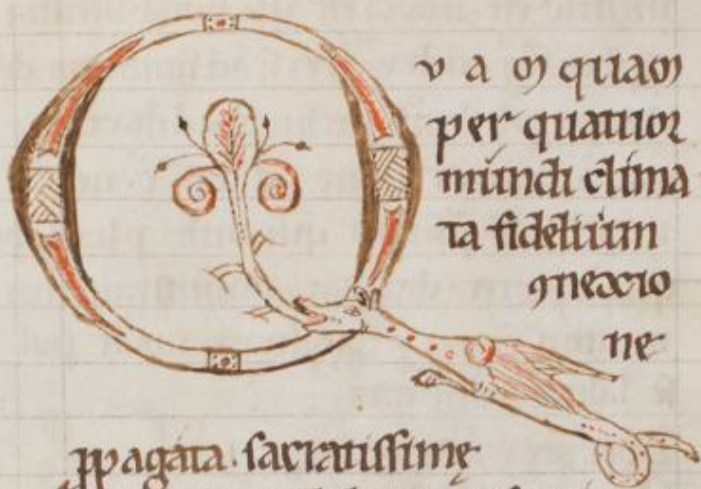 Q v a m quam
per quatuor
mundi clima
ta fidelium
ꝯnexio
ne
ꝓpagata. sacratissimę